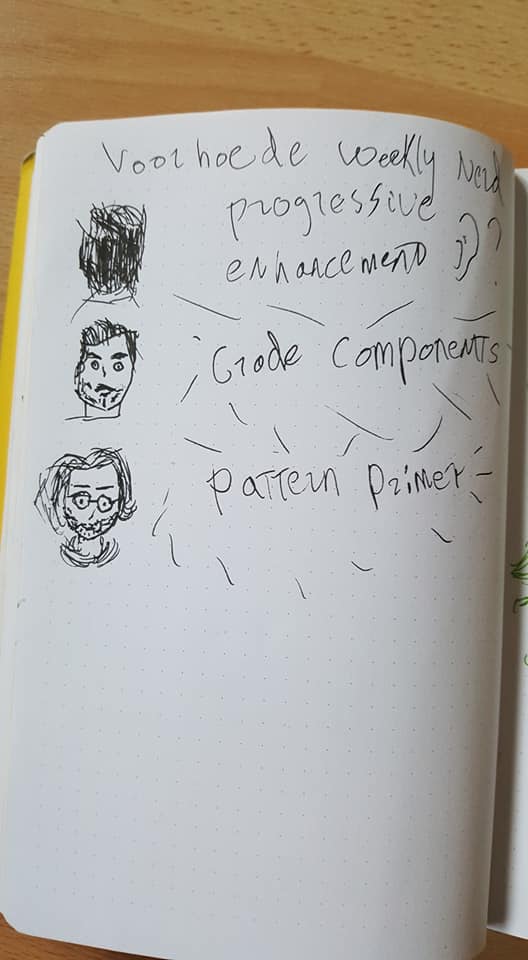 Voorhoede weekly Nerd
progressive
enhancement ?
Grade components
pattern primer